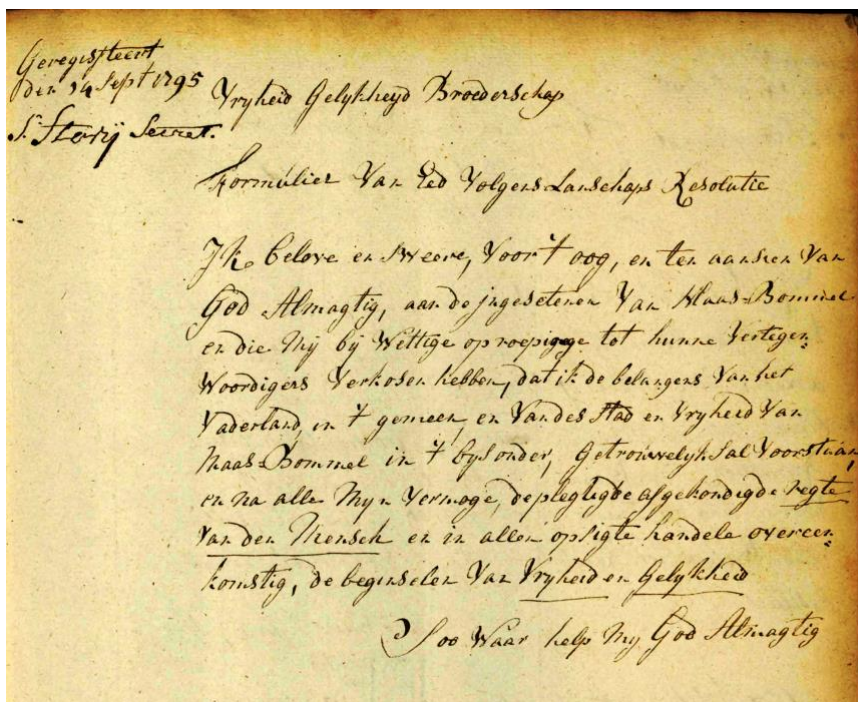 Geregisteert
den 14 Sept 1795
Secret.
Vryheid Gelykheyd Broederschap
Formulier Van Eed Volgens Lanschaps Resolutie
Ik belove en sweere, Voor 't oog, en ten aansien Van
God Almagtig, aan de jngesetenen Van Maas-Bommel
en die Mij bij Wettige oproepigge tot hunne Verteegen=
Woordigers Verkosen hebben, dat ik de belangens Van het
Vaderland, in 't gemeen, en Van des Stad en Vryheid Van
Maas=Bommel in 't bysonder, Getrouwelyk Sal Voorstaan,
en na alle Myn Vermoge, de plegtigde afgekondigde regte
Van den Mensch en in allen opsigte handele overeen=
komstig, de beginselen Van Vryheid en Gelykheid
Soo Waar help My God Almagtig